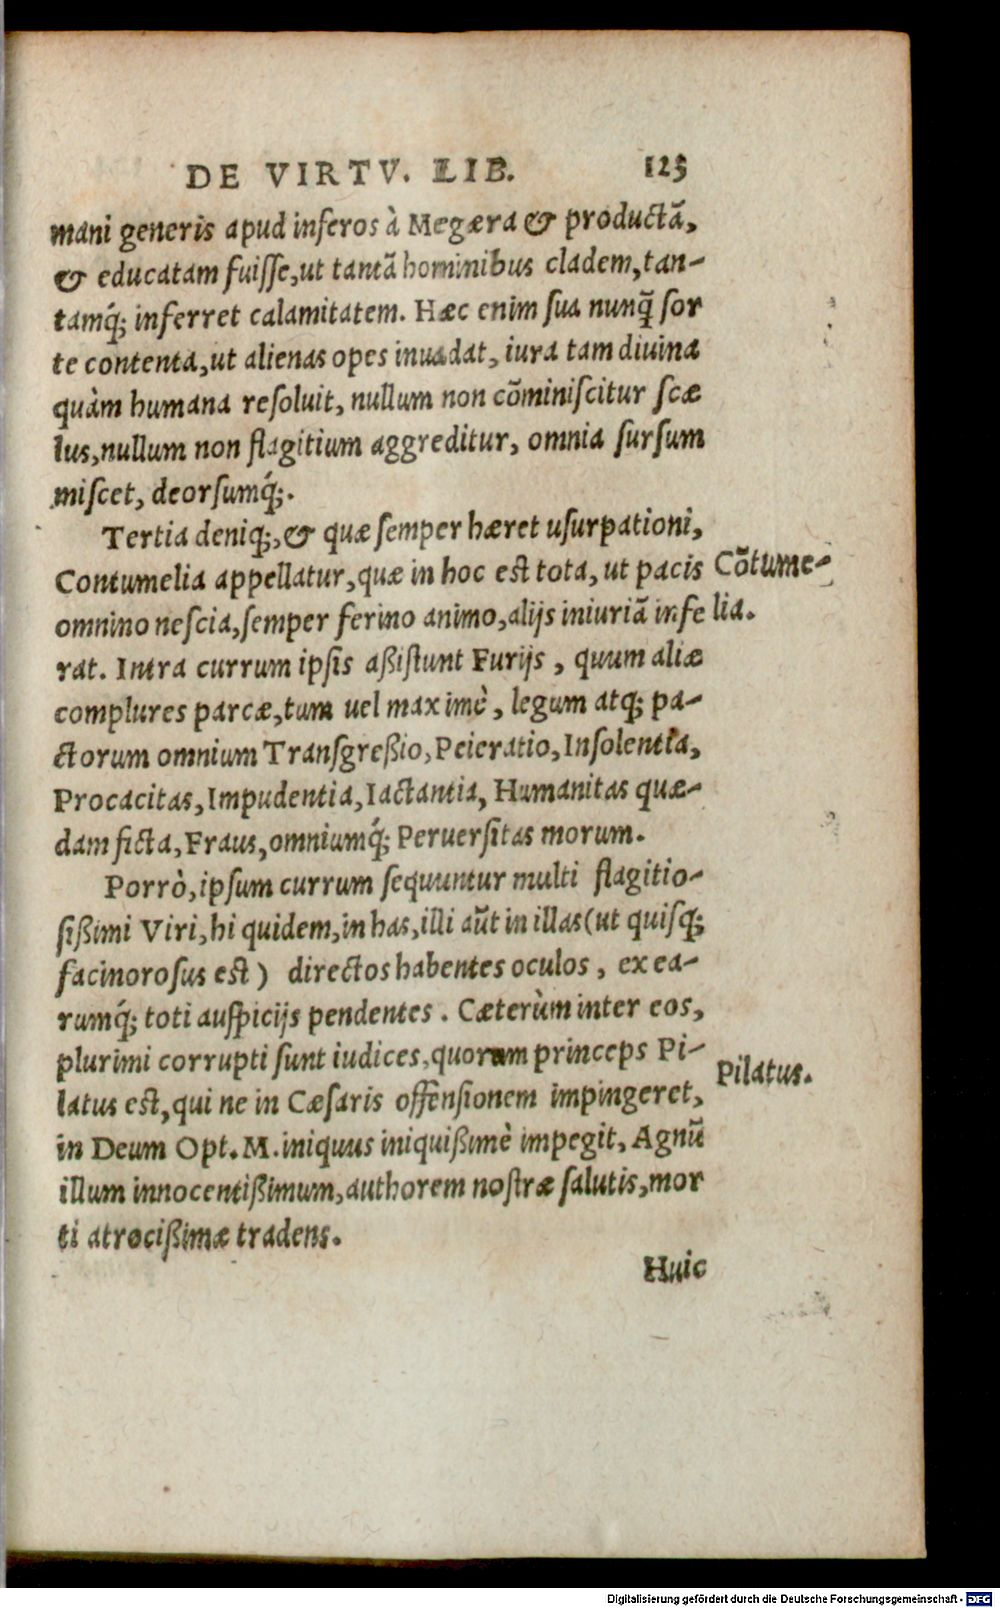 DE VIRTV. LIB. 123
mani generis apud inferos à Megæra & productā,
& educatam fuisse, ut tantā hominibus cladem, tan-
tamq́; inferret calamitatem. Hæc enim sua nunq̃ sor
te contenta, ut alienas opes inuadat, iura tam diuina
quàm humana resoluit, nullum non cōminiscitur scæ
lus, nullum non flagitium aggreditur, omnia sursum
miscet, deorsumq́;.
Tertia deniq;, & quæ semper hæret usurpationi,
Contumelia appellatur, quæ in hoc est tota, ut pacis
Cōtume-
omnino nescia, semper ferino animo, alijs iniuriā infe
lia.
rat. Intra currum ipsis aßistunt Furijs, quum aliæ
complures parcæ, tum uel maximè, legum atq; pa-
ctorum omnium Transgreßio, Peieratio, Insolentia,
Procacitas, Impudentia, Iactantia, Humanitas quæ-
dam ficta, Fraus, omniumq́; Peruersitas morum.
Porrò, ipsum currum sequuntur multi flagitio-
sißimi Viri, hi quidem, in has, illi aūt in illas (ut quisq;
facinorosus est) directos habentes oculos, ex ea-
rumq́; toti auspicijs pendentes. Cæterùm inter eos,
plurimi corrupti sunt iudices, quorum princeps Pi-
Pilatus.
latus est, qui ne in Cæsaris offensionem impingeret,
in Deum Opt. M. iniquus iniquißimè impegit, Agnū
illum innocentißimum, authorem nostræ salutis, mor
ti atrocißimæ tradens.
Huic
Digitalisierung gefördert durch die Deutsche Forschungsgemeinschaft - DFG